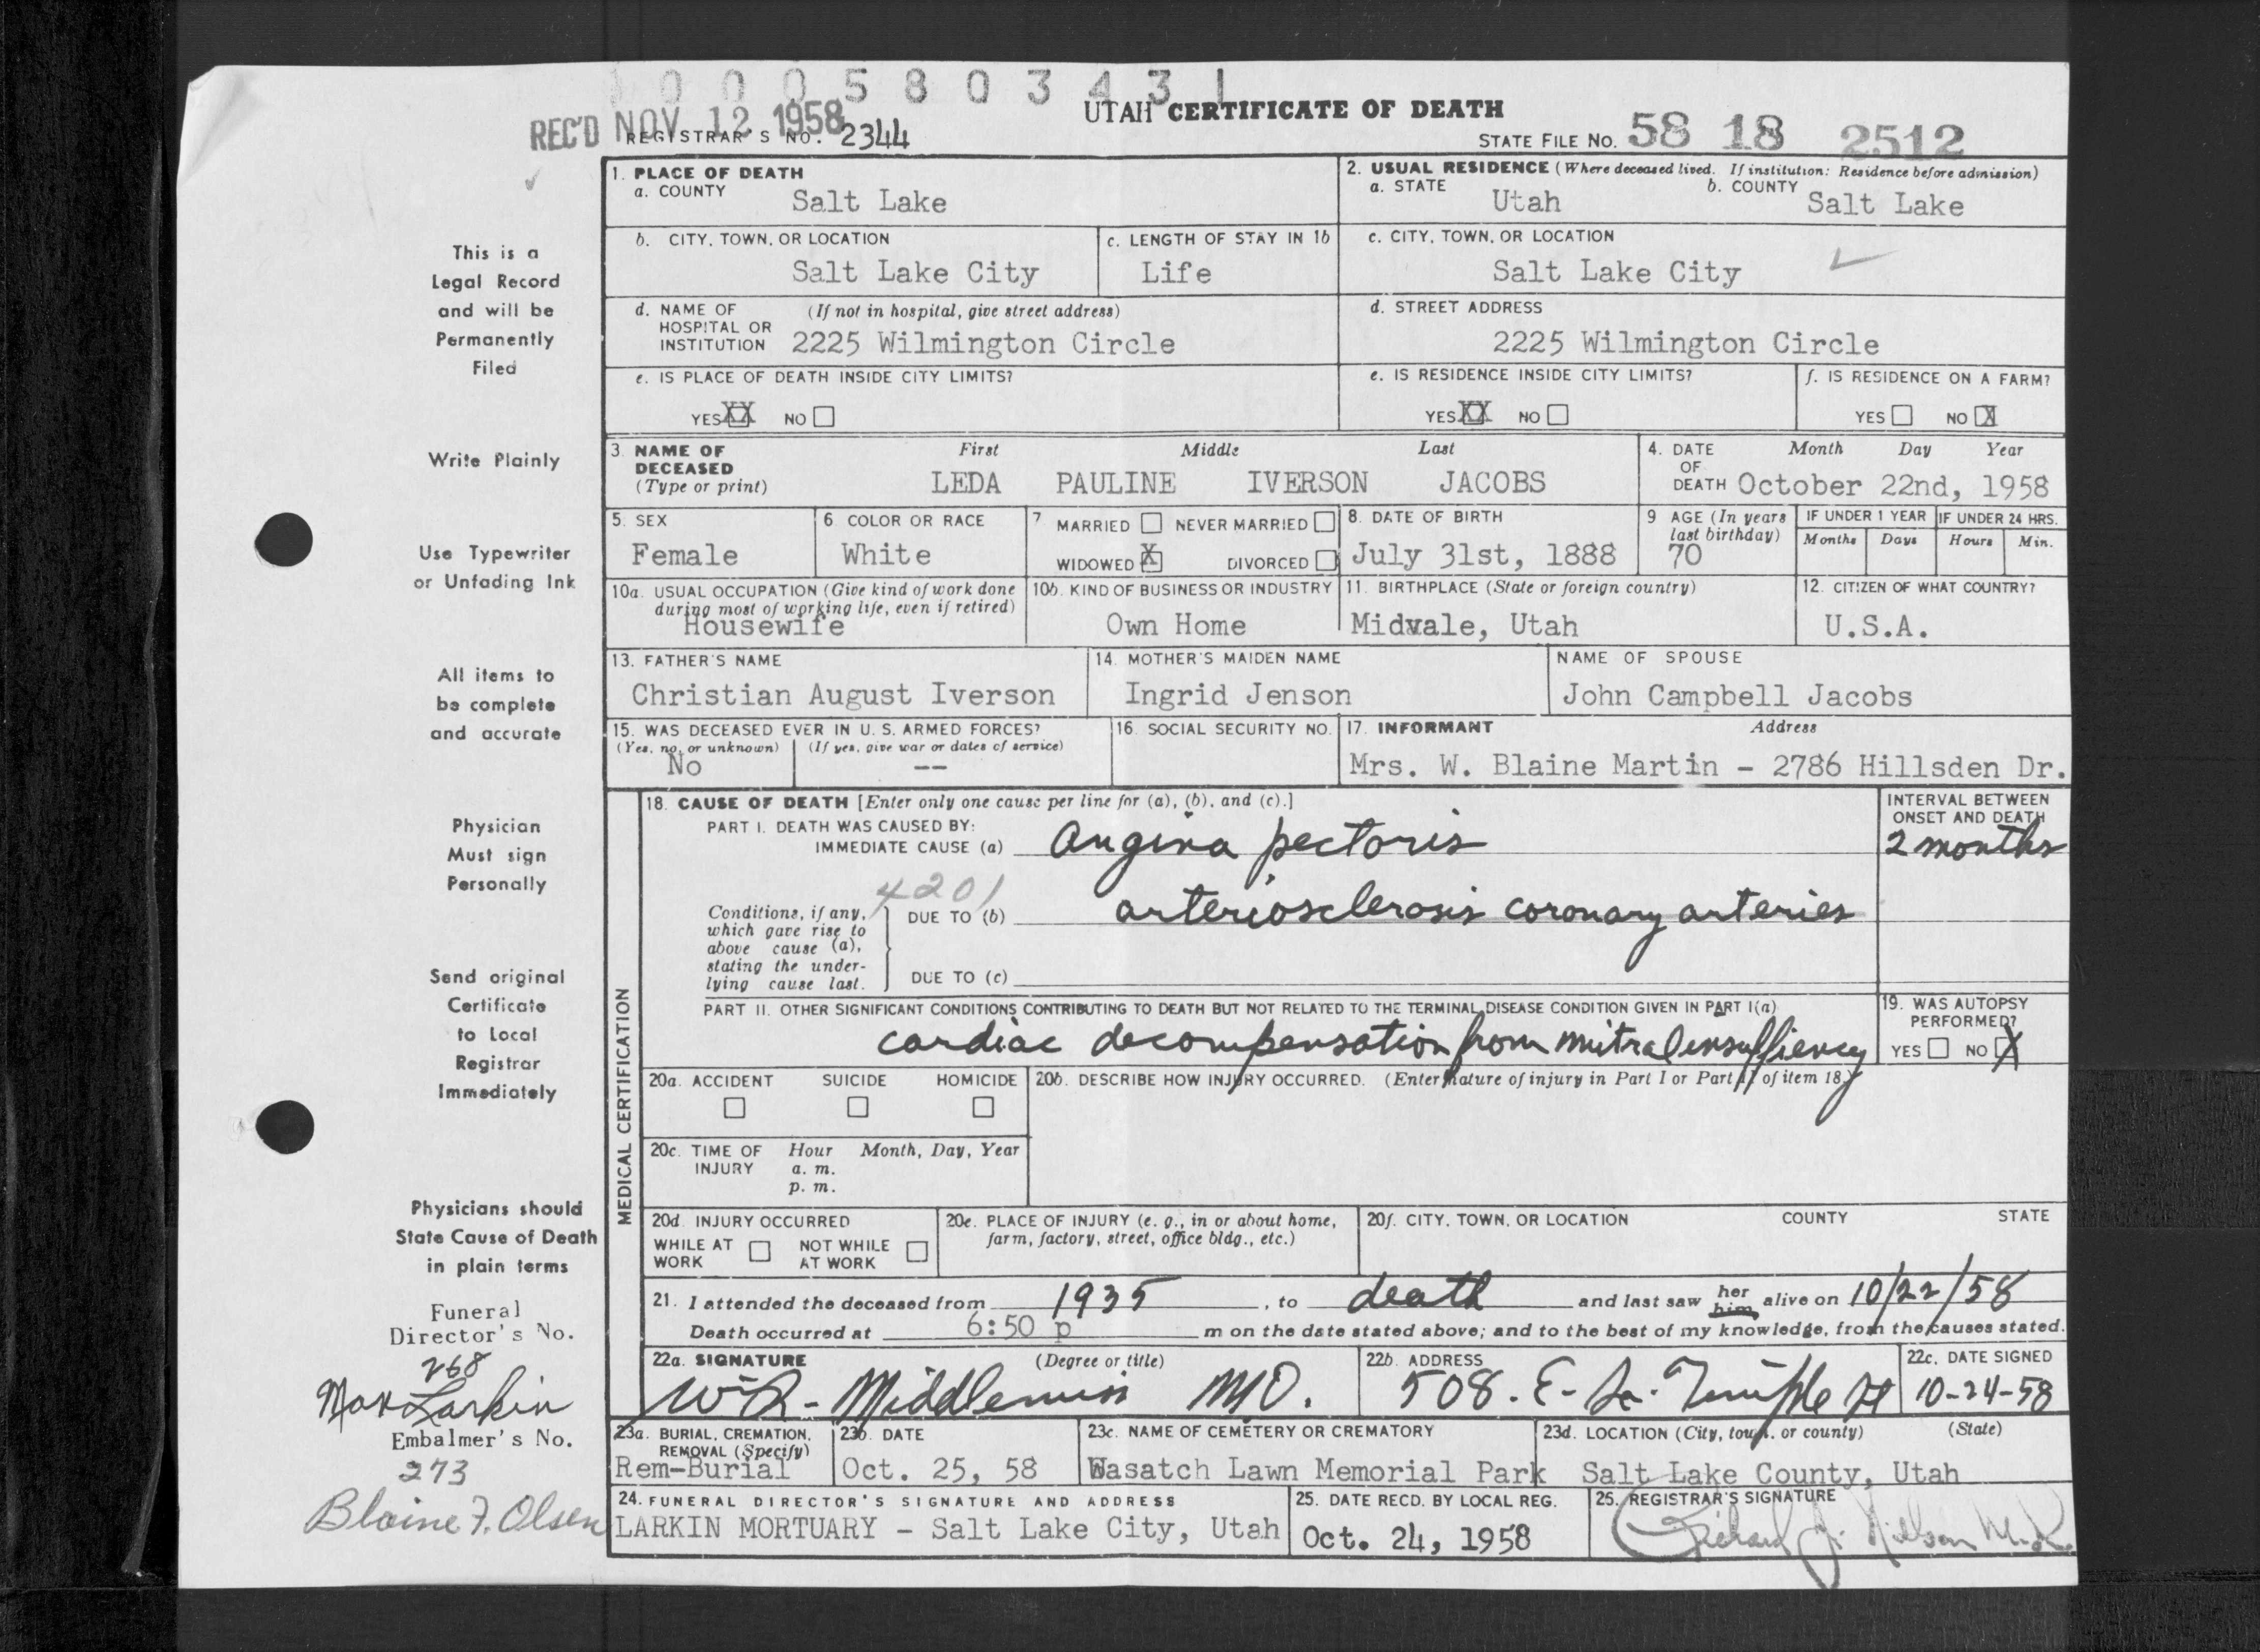 1 0 0 0 5 8 0 3 4 3 1
REC'D NOV 12 1958
REGISTRAR'S NO. 2344
UTAH CERTIFICATE OF DEATH
STATE FILE NO. 58 18 2512
This is a
Legal Record
and will be
Permanently
Filed
Write Plainly
Use Typewriter
or Unfading Ink
All items to
be complete
and accurate
Physician
Must sign
Personally
Send original
Certificate
to Local
Registrar
Immediately
Physicians should
State Cause of Death
in plain terms
Funeral
Director's No.
268
Max Larkin
Embalmer's No.
273
Blaine F. Olsen
1. PLACE OF DEATH
a. COUNTY Salt Lake
2. USUAL RESIDENCE (Where deceased lived. If institution: Residence before admission)
a. STATE Utah b. COUNTY Salt Lake
b. CITY, TOWN, OR LOCATION Salt Lake City
c. LENGTH OF STAY IN 1b Life
c. CITY, TOWN, OR LOCATION Salt Lake City
d. NAME OF (If not in hospital, give street address)
HOSPITAL OR
INSTITUTION 2225 Wilmington Circle
d. STREET ADDRESS
2225 Wilmington Circle
e. IS PLACE OF DEATH INSIDE CITY LIMITS?
YES XX NO
e. IS RESIDENCE INSIDE CITY LIMITS?
YES XX NO
f. IS RESIDENCE ON A FARM?
YES NO X
3. NAME OF DECEASED (Type or print)
First Middle Last
LEDA PAULINE IVERSON JACOBS
4. DATE OF DEATH Month Day Year
October 22nd, 1958
5. SEX
Female
6 COLOR OR RACE
White
7 MARRIED NEVER MARRIED
WIDOWED X DIVORCED
8. DATE OF BIRTH
July 31st, 1888
9 AGE (In years last birthday)
70
IF UNDER 1 YEAR IF UNDER 24 HRS.
Months Days Hours Min.
10a. USUAL OCCUPATION (Give kind of work done
during most of working life, even if retired)
Housewife
10b. KIND OF BUSINESS OR INDUSTRY
Own Home
11. BIRTHPLACE (State or foreign country)
Midvale, Utah
12. CITIZEN OF WHAT COUNTRY?
U.S.A.
13. FATHER'S NAME
Christian August Iverson
14. MOTHER'S MAIDEN NAME
Ingrid Jenson
NAME OF SPOUSE
John Campbell Jacobs
15. WAS DECEASED EVER IN U. S. ARMED FORCES?
(Yes, no, or unknown) (If yes, give war or dates of service)
No --
16. SOCIAL SECURITY NO.
17. INFORMANT Address
Mrs. W. Blaine Martin - 2786 Hillsden Dr.
MEDICAL CERTIFICATION
18. CAUSE OF DEATH [Enter only one cause per line for (a), (b), and (c).]
INTERVAL BETWEEN
ONSET AND DEATH
PART I. DEATH WAS CAUSED BY:
IMMEDIATE CAUSE (a) Angina pectoris
2 months
4201
Conditions, if any,
which gave rise to
above cause (a),
stating the under-
lying cause last.
DUE TO (b) arteriosclerosis coronary arteries
DUE TO (c)
PART II. OTHER SIGNIFICANT CONDITIONS CONTRIBUTING TO DEATH BUT NOT RELATED TO THE TERMINAL DISEASE CONDITION GIVEN IN PART I(a)
cardiac decompensation from mitral insuffiency
19. WAS AUTOPSY
PERFORMED?
YES NO X
20a. ACCIDENT SUICIDE HOMICIDE
20b. DESCRIBE HOW INJURY OCCURRED. (Enter nature of injury in Part I or Part II of item 18.)
20c. TIME OF INJURY Hour Month, Day, Year
a. m.
p. m.
20d. INJURY OCCURRED
WHILE AT WORK NOT WHILE AT WORK
20e. PLACE OF INJURY (e. g., in or about home,
farm, factory, street, office bldg., etc.)
20f. CITY, TOWN, OR LOCATION COUNTY STATE
21. I attended the deceased from 1935, to death and last saw her him alive on 10/22/58
Death occurred at 6:50 p m on the date stated above; and to the best of my knowledge, from the causes stated.
22a. SIGNATURE (Degree or title)
Middlemiss MD.
22b. ADDRESS
508. E- So. Temple St
22c. DATE SIGNED
10-24-58
23a. BURIAL, CREMATION,
REMOVAL (Specify)
Rem-Burial
23b. DATE
Oct. 25, 58
23c. NAME OF CEMETERY OR CREMATORY
Wasatch Lawn Memorial Park
23d. LOCATION (City, town, or county) (State)
Salt Lake County, Utah
24. FUNERAL DIRECTOR'S SIGNATURE AND ADDRESS
LARKIN MORTUARY - Salt Lake City, Utah
25. DATE RECD. BY LOCAL REG.
Oct. 24, 1958
26. REGISTRAR'S SIGNATURE
Richard J. Nelson M.D.